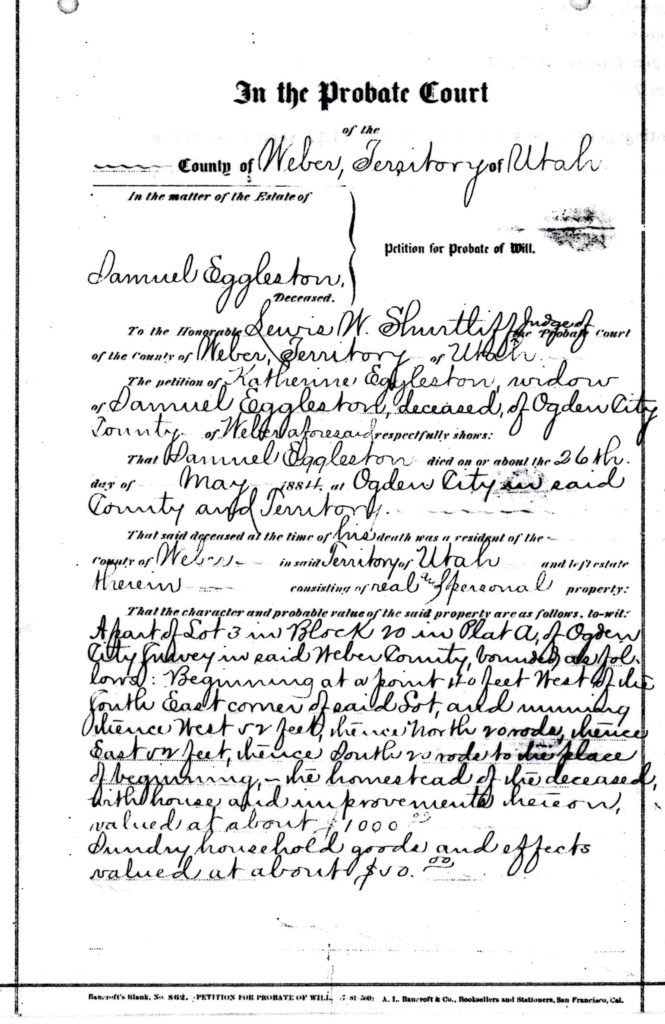 In the Probate Court
of the
County of Weber, Territory of Utah
In the matter of the Estate of
Petition for Probate of Will.
Samuel Eggleston,
Deceased.
To the Honorable Lewis W. Shurtliff, Judge of the Probate Court
of the County of Weber, Territory of Utah
The petition of Katherine Eggleston, widow
of Samuel Eggleston, deceased, of Ogden City
County of Weber aforesaid respectfully shows:
That Samuel Eggleston died on or about the 26th.
day of May 1884. at Ogden City in said
County and Territory.
That said deceased at the time of his death was a resident of the
County of Weber in said Territory of Utah and left estate
therein consisting of real & personal property:
That the character and probable value of the said property are as follows, to-wit:
A part of Lot 3 in Block 20 in Plat A, of Ogden
City Survey in said Weber County, bounded as fol-
lows: Beginning at a point 140 feet West of the
South East corner of said Lot, and running
thence West 52 feet, thence North 20 rods, thence
East 52 feet, thence South 20 rods to the place
of beginning, - the homestead of the deceased,
with house and improvements thereon,
valued at about $1000 00
Sundry household goods and effects
valued at about $50. 00
Bancroft's Blank, No. 862. -PETITION FOR PROBATE OF WILL. A. L. Bancroft & Co., Booksellers and Stationers, San Francisco, Cal.